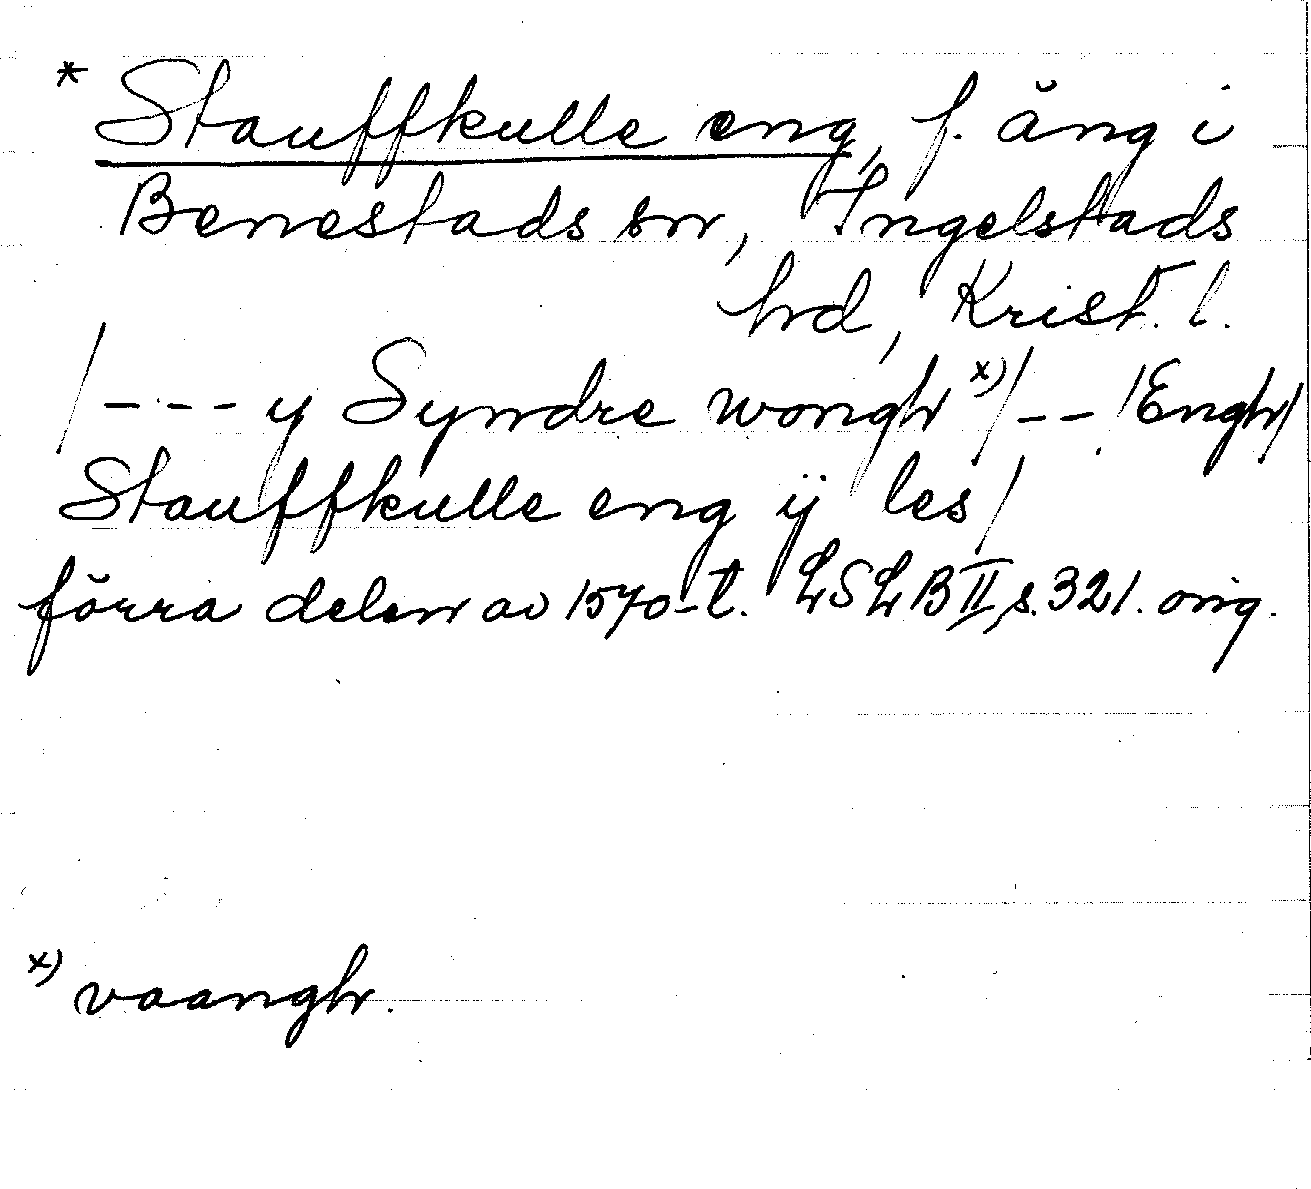 * Stauffkulle eng, f. äng i
Benestads sn, Ingelstads
hd, Krist. l.
/---y Syndre wongh x)/--/Engh/
Stauffkulle eng ij les/
förra delen av 1570-t. LSLB II, s. 321. orig.
x) vaangh.